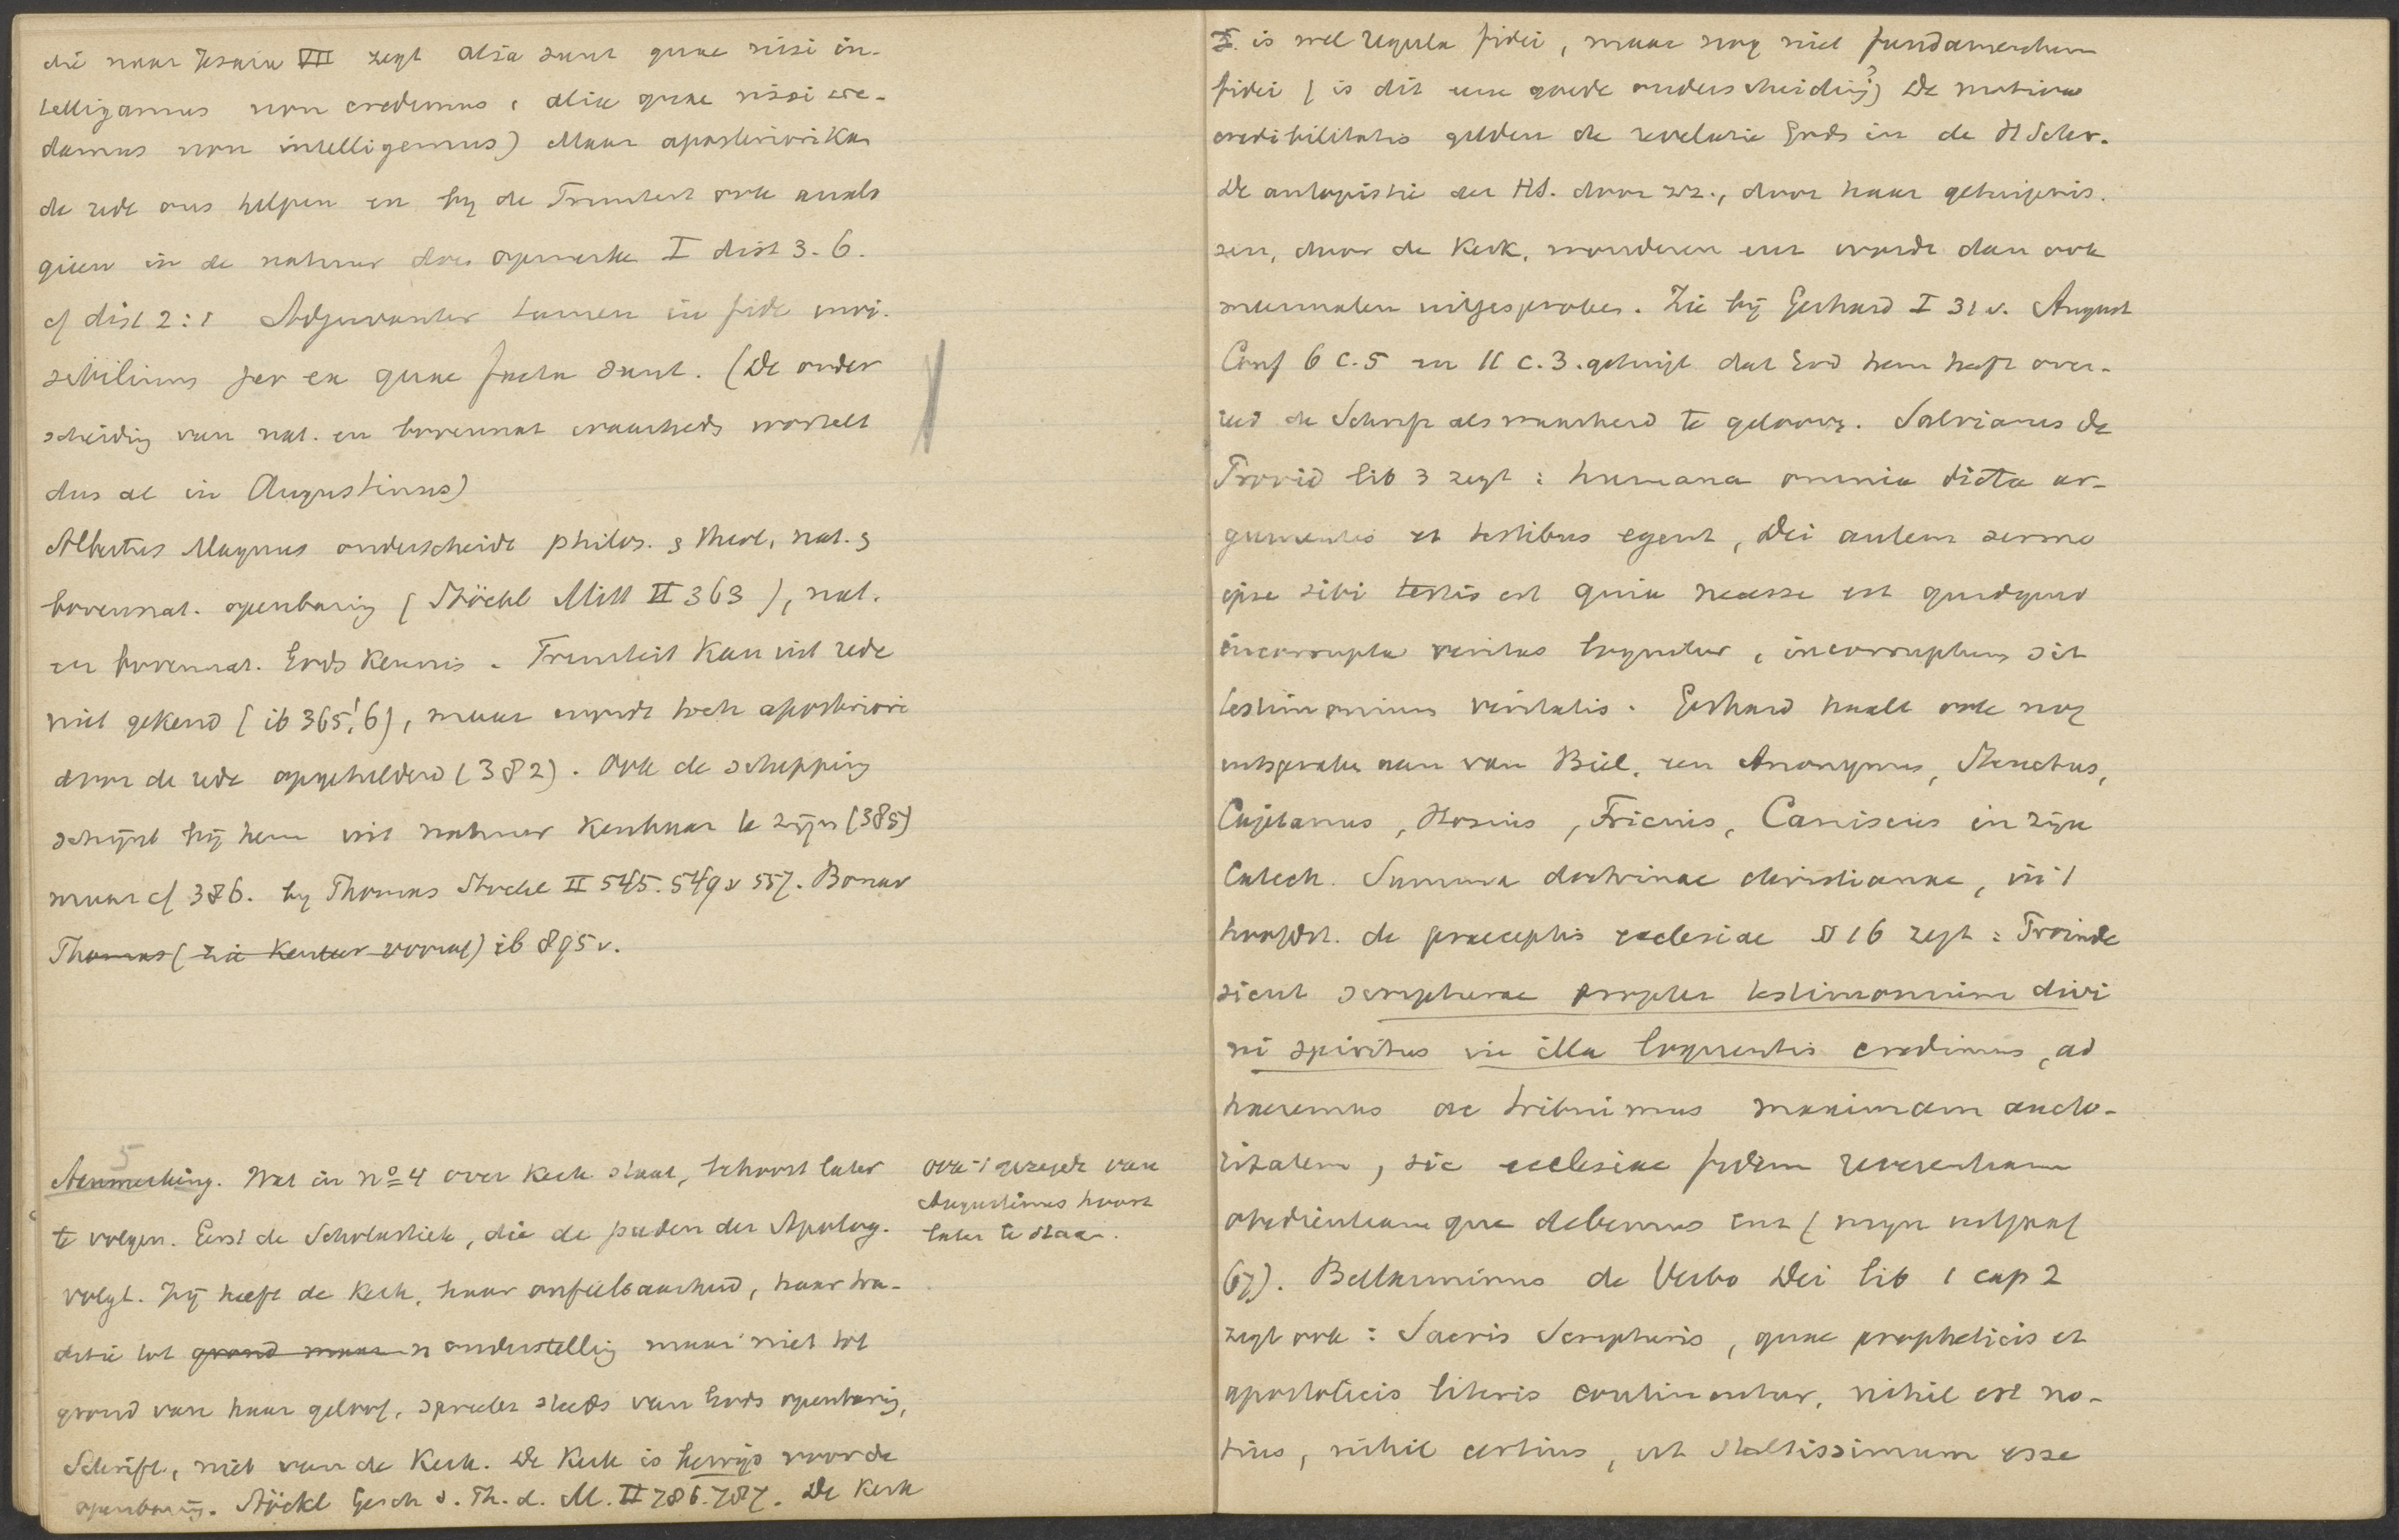 die naar Jesaia VII zegt alia sunt quae nisi in-
telligamus non credimus, alia quae nisi cre-
damus non intelligemus) Maar aposteriori kan
de rede ons helpen en bij de Triniteit ook anals
gieen in de natuur doen opmerken I dist 3. 6.
cf dist 2:1 Adjuvantur tamen in fide invi-
sibilium per ea quae facta sunt. (De onder
scheiding van nat. en bovennat waarheds wortelt
dus al in Augustinus)
Albertus Magnus onderscheidt philos. & theol, nat. &
bovennat. openbaring (Stöckl Mitt II 363), nat.
en bovennat. Gods kennis. Triniteit kan uit rede
niet gekend (ib 365, 6), maar wordt toch aposteriori
door de rede opgehelderd (382). Ook de schepping
schijnt bij hem uit natuur kenbaar te zijn (385)
maar cf 386. by Thomas Stöckl II 545. 549 v 557. Bonav
Thomas (zie Kentur vooraf) ib 895 v.
5
Aanmerking. Wat in no 4 over kerk staat, behoort later
te volgen. Eerst de Scholastiek, die de paden der Apolog.
volgt. Zij heeft de kerk, haar onfeilbaarheid, haar tra-
ditie tot grond maar n onderstelling maar niet tot
grond van haar geloof, spreekt steeds van Gods openbaring,
Schrift, niet van de Kerk. De Kerk is bewijs voor de
openbaring. Stöckl Gesch d. Ph. d. M. II 786. 787. De Kerk
ook 't gezegde van
Augustinus hoort
later te staan.
I. is wel regula fidei, maar nog niet fundamentum
fidei (is dit eene goede onderscheiding?) De motiva
credibilitatis gelden de revelatie Gods in de H Schr.
De autopistie der HS. door zz., door haar getuigenis-
sen, door de Kerk, wonderen enz wordt dan ook
meermalen uitgesproken. Zie bij Gerhard I 31 v. August
Conf 6 c. 5 en 11 c. 3. getuigt dat God hem heeft over-
reed de Schrift als waarheid te gelooven. Salvianus de
Provid lib 3 zegt: humana omnia dicta ar-
gumentis et testibus egent, Dei autem sermo
ipse sibi testis est quia necesse est quidquid
incorrupta veritas loquitur, incorruptum sit
testimonium veritatis. Gerhard haalt ook nog
uitspraken aan van Biel, een Anonymus, Steuchus,
Cajetanus, Hosius, Fricius, Canisius in zijn
Catech. Summa doctrinae christianae, in 't
hoofdst. de praeceptis ecclesiae § 16 zegt: Proinde
sicut scripturae propter testimonium divi
ni spiritus in illa loquentis credimus, ad
haeremus ac tribuimus maximam aucto-
ritatem, sic ecclesiae fidem reverentiam
obedientiamque debemus enz (mijn uitgaaf
67). Bellarminus de Verbo Dei lib 1 cap 2
zegt ook: Sacris Scripturis, quae propheticis et
apostolicis literis continentur, nihil est no-
tius, nihil certius, ut stultissimum esse